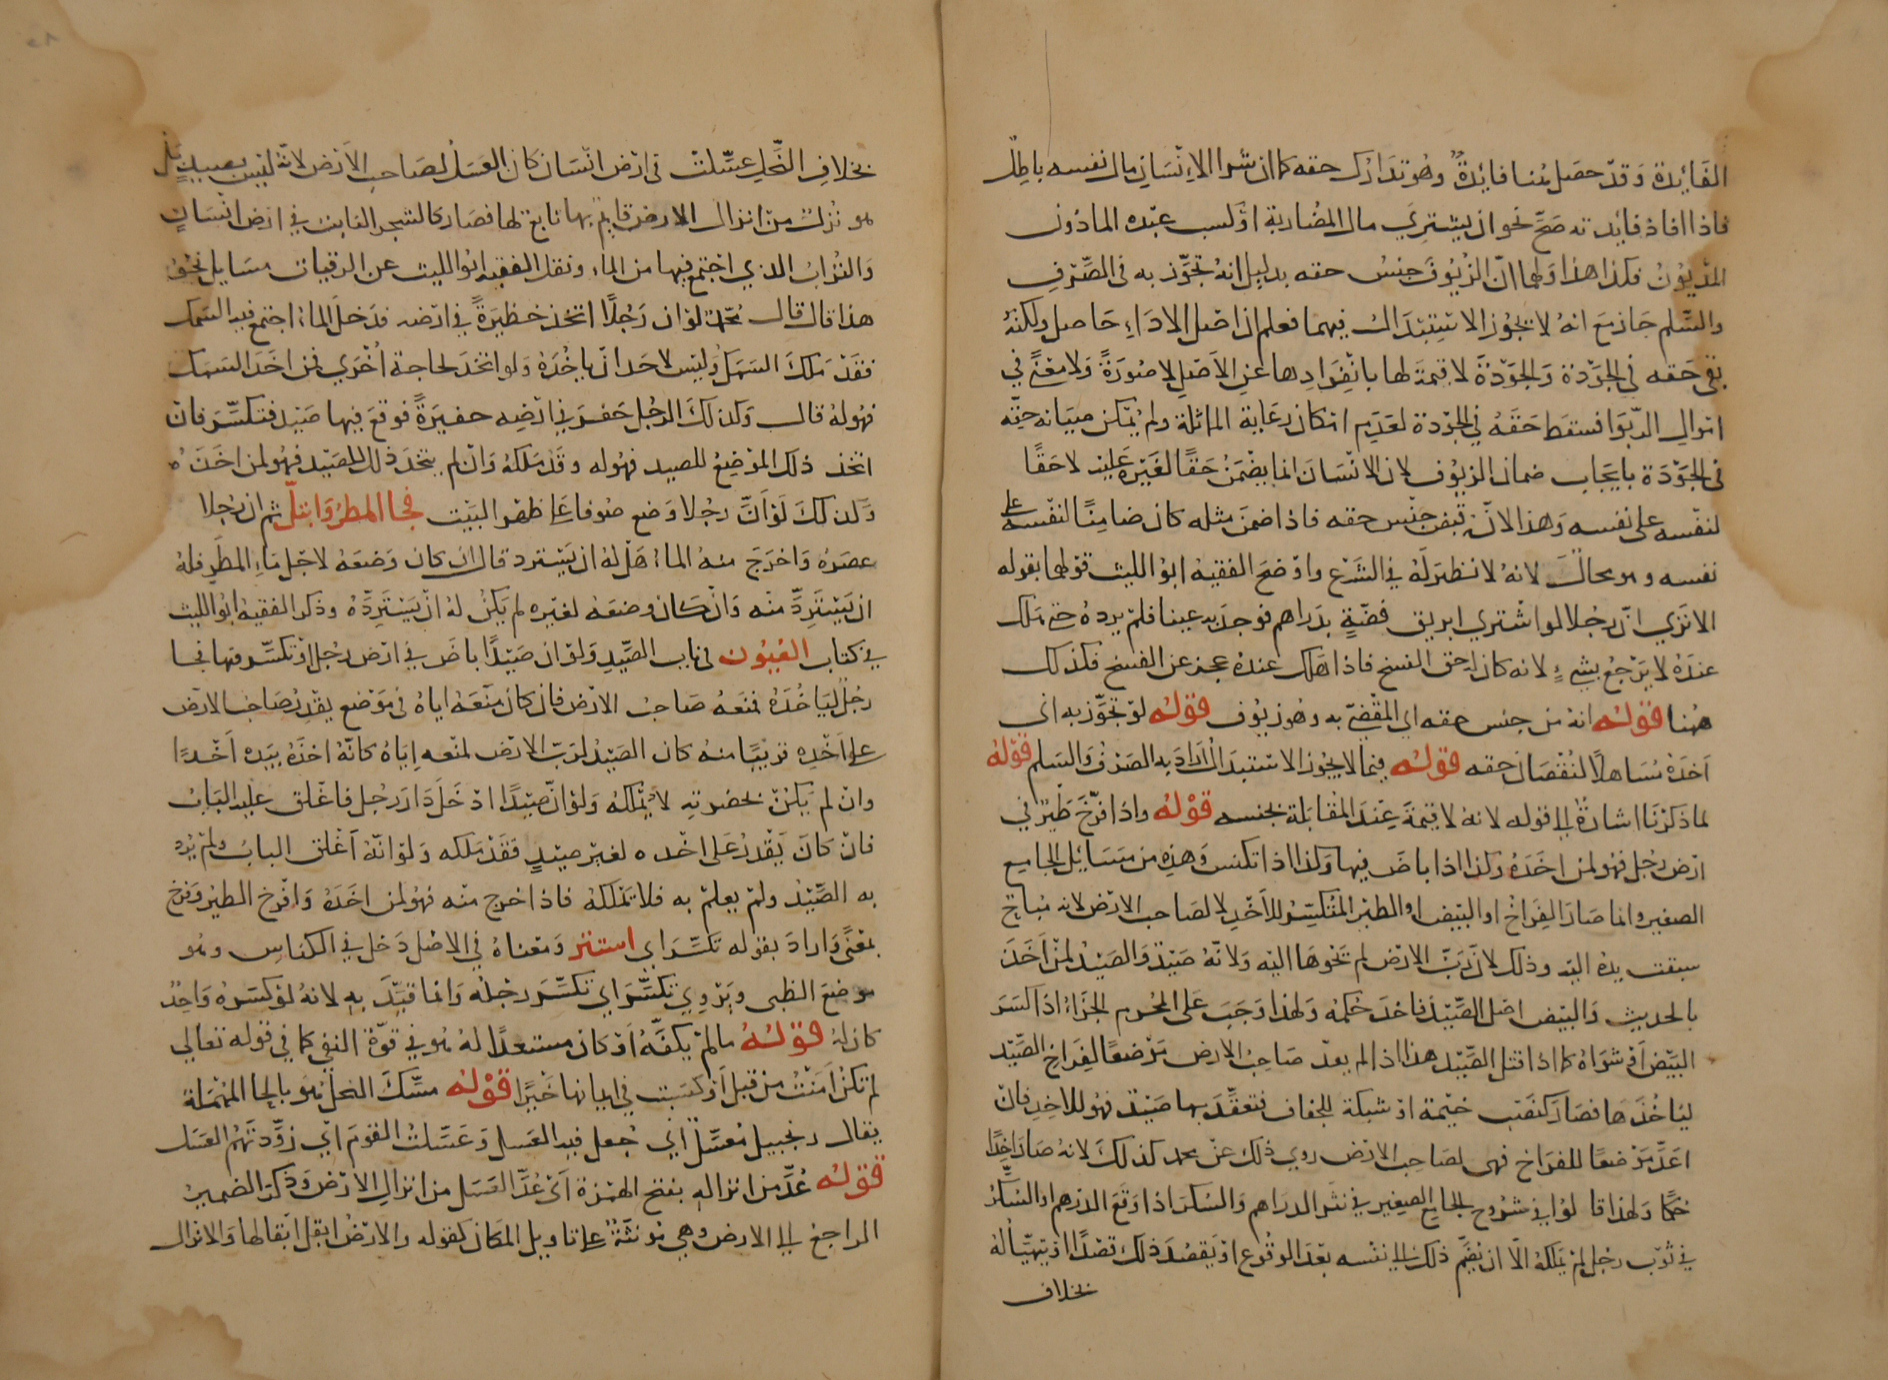 الفَائدة وَقدْ حصَل هُنا فائدةٌ وهُو تدَارُك حقه كما ان شرا الانسَانِ مال نفسه باطِل
فاذا افاد فايدته صَحَّ نحو ان يشتِريَ مال المضاربة اوْ كسب عبْده الماذون
المدْيُوْن فكذا هذا وَلهما انّ الزيُوفَ جنسُ حقه بدليل انهُ لو تجوّز به فى الصّرْفِ
والسَّلم جَاز مَعَ انهُ لا يجُوز الاسْتِبْدَال فيهما فعلم ان اصْل الادَاءِ حَاصل ولكنهُ
بقى حَقه فى الجَوْدة وَالجَوْدَة لا قِيمة لها بانْفِرَادِها عن الاَصْلِ لا صُورَةً وَلا معْنًى في
امْوالِ الرّبَوا فسقط حَقهُ فِي الجَوْدة لعَدَمِ امْكان رعَاية المماثلة ولمْ يُمكن صيَانة حقّه
فى الجَوْدَة بايجَاب ضمان الزيُوف لان الانْسَانَ انما يضْمَنُ حَقًا لغَيْره عَليْه لا حَقًا
لنفْسه على نفسه وَهذا لانّه قبضَ جنْس حقه فاذا ضمنَ مثله كان ضامِنًا لنفْسه على
نفسه وهو محَالٌ لانهُ لا نظيرَ لَهُ في الشَّرْع واوْضحَ الفقيهُ ابوُ الليث قوْلهما بقوله
الا ترَي انّ رجُلا لو اشْتري ابريق فضّةٍ بدَراهم فوجدَ به عيبا فلمْ يردهُ حتى هَلك
عندَهُ لا يرْجعُ بشيءٍ لانه كان لهُ حق الفسخ فاذا هَلك عندهُ عجز عن الفسخ فكذلك
هُنا قوْلهُ انهُ من جنس حقه اي المقْضيّ به وهُوَ زيُوف قوْلهُ لوْ تجوّز به اي
اَخذهُ مُسَاهلاً لنُقْصَان حقه قوْلهُ فيما لا يجُوز الاسْتبْدَالُ ارادَ به الصَرْف وَالسَلم قوْلهُ
لما ذكرْنَا اشارةٌ إلى قوله لانهُ لا قيمَةَ عِنْدَ المُقَابَلة بجنسه قوْلهُ واذا افرْخَ طَيْر في
ارْض رجُل فهُو لمن اخَذهُ وكذا اذا باضَ فيها وَكذا اذا تكنس وَهذِهِ من مسَائل الجامِع
الصغير وانما صَارَ الفِرَاخُ او البَيْضُ او الطيْر المُتكسّرُ للآخِذِ لا لصَاحب الارْض لانه مُباحٌ
سبقت يدُهُ اليْه وذلك لانّ رَبّ الارْض لم يَحْوها اليْه وَلانّهُ صَيْدٌ وَالصَيْدُ لمنْ اَخَذَ
بالحديث وَالبَيْض اصْل الصَّيْد فاخذَ حُكمَهُ وَلهذا وَجَبَ عَلى المحْرِم الجزَاءُ اذا كسَرَ
البَيْضَ اوْ شوَاهُ كما اذا قتل الصَّيْد هذا اذا لم يعدّ صَاحبُ الارض موْضعًا لفِرَاخِ الصَّيْد
ليَاخُذَها فصَارَ كنَصْب خَيْمة اوْ شبَكة للجَفاف فتعقّدَ بها صَيْدٌ فهُو للاخِذِ فانْ
اعَدّ مَوْضعًا للفرَاخ فهى لصَاحب الارْض روي ذلك عنْ محمد كذلكَ لانهُ صَارَ اخِذًا
حُكْمًا وَلهذا قالوُا في شرُوْح الجَامع الصغير في نثر الدراهم وَالسُكر اذا وَقَعَ الدرهم اوالسُكّرُ
في ثوْب رجُل لمْ يَملكهُ الاّ ان يَضُمَّ ذلكَ الى نفسه بَعْدَ الوقوع اوْ يَقصُدَ ذلكَ قصْدًا اوْ يتهيّا لهُ
بخلاف
بخلافِ النَّحلِ عسَّلتْ فى ارْض انْسَان كان العَسَلُ لصَاحبِ الاَرْض لانّهُ ليْس بصيدٍ بَلْ
هو نُزلٌ منْ انزال الارض قايمٌ بها تابعٌ لها فصَارَ كالشجرِ النابت في ارْض انْسَانٍ
وَالتُرابُ الذي اجْتمعَ فيها من الماء ونقل الفقيه ابوُ الليث عن الرقيات مسَايل تحقق
هذا قال قال محمد لوْ ان رَجُلاً اتخذ حَظيرَةً في ارْضه فدَخلَ الماءُ اجتمع فيه السَمك
فقدْ مَلكَ السَمك وليْس لاحَد انْ ياخُذَهُ وَلو اتخذ لحَاجة اُخْرَي فمن اخَذَ السَمَك
فهُولهُ قال وَكذلكَ الرجُل حَفرَ في ارْضِه حَفيرَةً فوقعَ فيها صَيْد فتكسَّر فانْ
اتخذ ذلك الموْضِعَ للصيد فهُوله وَقدْ مَلكهُ وَانْ لم يتخذ ذلك للصَيْد فهُو لمن اخَذَهُ
وَكذلكَ لوْ اَنَّ رجُلا وَضع صُوفا عَلى ظهْر البَيْت فجا المطرُ وَابتلّ ثم ان رجُلا
عصَرَهُ وَاخرَجَ منهُ الماءَ هَلْ لهُ ان يَسْترد قال ان كان وَضعَهُ لاجْل مَاءِ المطَر فلهُ
ان يَسْتَردَّ منْه وَانْ كان وضعَهُ لغيْره لم يَكنْ لهُ انْ يَسْتردّهُ وذكر الفقيه ابوُ الليث
في كتاب العُيُون في باب الصَّيْدِ وَلوْ ان صَيْدًا باضَ في ارْض رجُلٍ اوْ تكسَّر فيها فجا
رجُلٌ ليَاخُذَهُ فمنعَهُ صَاحبُ الارْض فان كان مَنْعَهُ اياهُ في مَوْضعٍ يقْدرُ صَاحبُ الارْض
على اَخْذِهِ قريْبًا منهُ كان الصَيْدُ لربّ الارْض لمنْعه اِيَاهُ كانّهُ اخذَهُ بيَده اَخْذًا
وانْ لم يَكنْ بحَضْرتِهِ لا يُمْلكهُ وَلوْ انّ صَيْدًا ادْخَلَ دَارَ رجُل فاغْلق عليْه البَابُ
فانْ كان يَقْدرُ على اخْذه لغَيْر صَيْدٍ فقَدْ مَلكه وَلوْ انّهُ اَغْلق البابُ ولم يُردْ
به الصَّيْدَ ولم يعلمْ به فلا يَمْلكهُ فاذا خرج منْه فهُو لمن اخَذَهُ وَافْرخ الطيْر وَفرّخ
بمعْنًى وَارادَ بقوله تكسَّرَ اى استتر وَمعْناهُ في الاصْل دَخل في الكنَاسِ وهُو
موضعُ الظبى ويَرْوِي تكسَّرَ اي تكسَّرَ رجْلهُ وَانما قيّدَ به لانهُ لوْ كسَرَهُ وَاحدٌ
كان لهُ قوْلهُ ما لمْ يكفّهُ اَوْ كان مستعدًا لهُ هُو في قوّة النفي كما في قوله تعَالي
لم تكنْ اَمنَتْ مِنْ قبل اَوْ كسَبت في ايمانها خَيْرًا قوْلهُ عسَّلَ النحل هُو بالحا المُهْمَلة
يقال زنجبيل مُعسَّل اَيْ جُعلَ فيه العَسل وَعَسَّلتُ القوْمَ اَيْ زوَّدْتَهُمُ العَسَل
قوْلهُ عُدَّ مِن انزاله بفتح الهمْزة اَيْ عُدَّ العَسَل من انزالِ الارْض وَذكرَ الضميرَ
الراجعَ الى الارض وهي مُونثةٌ على تاويل المكان كقوله والارْضُ ابقلَ ابْقالها وَالانزالُ